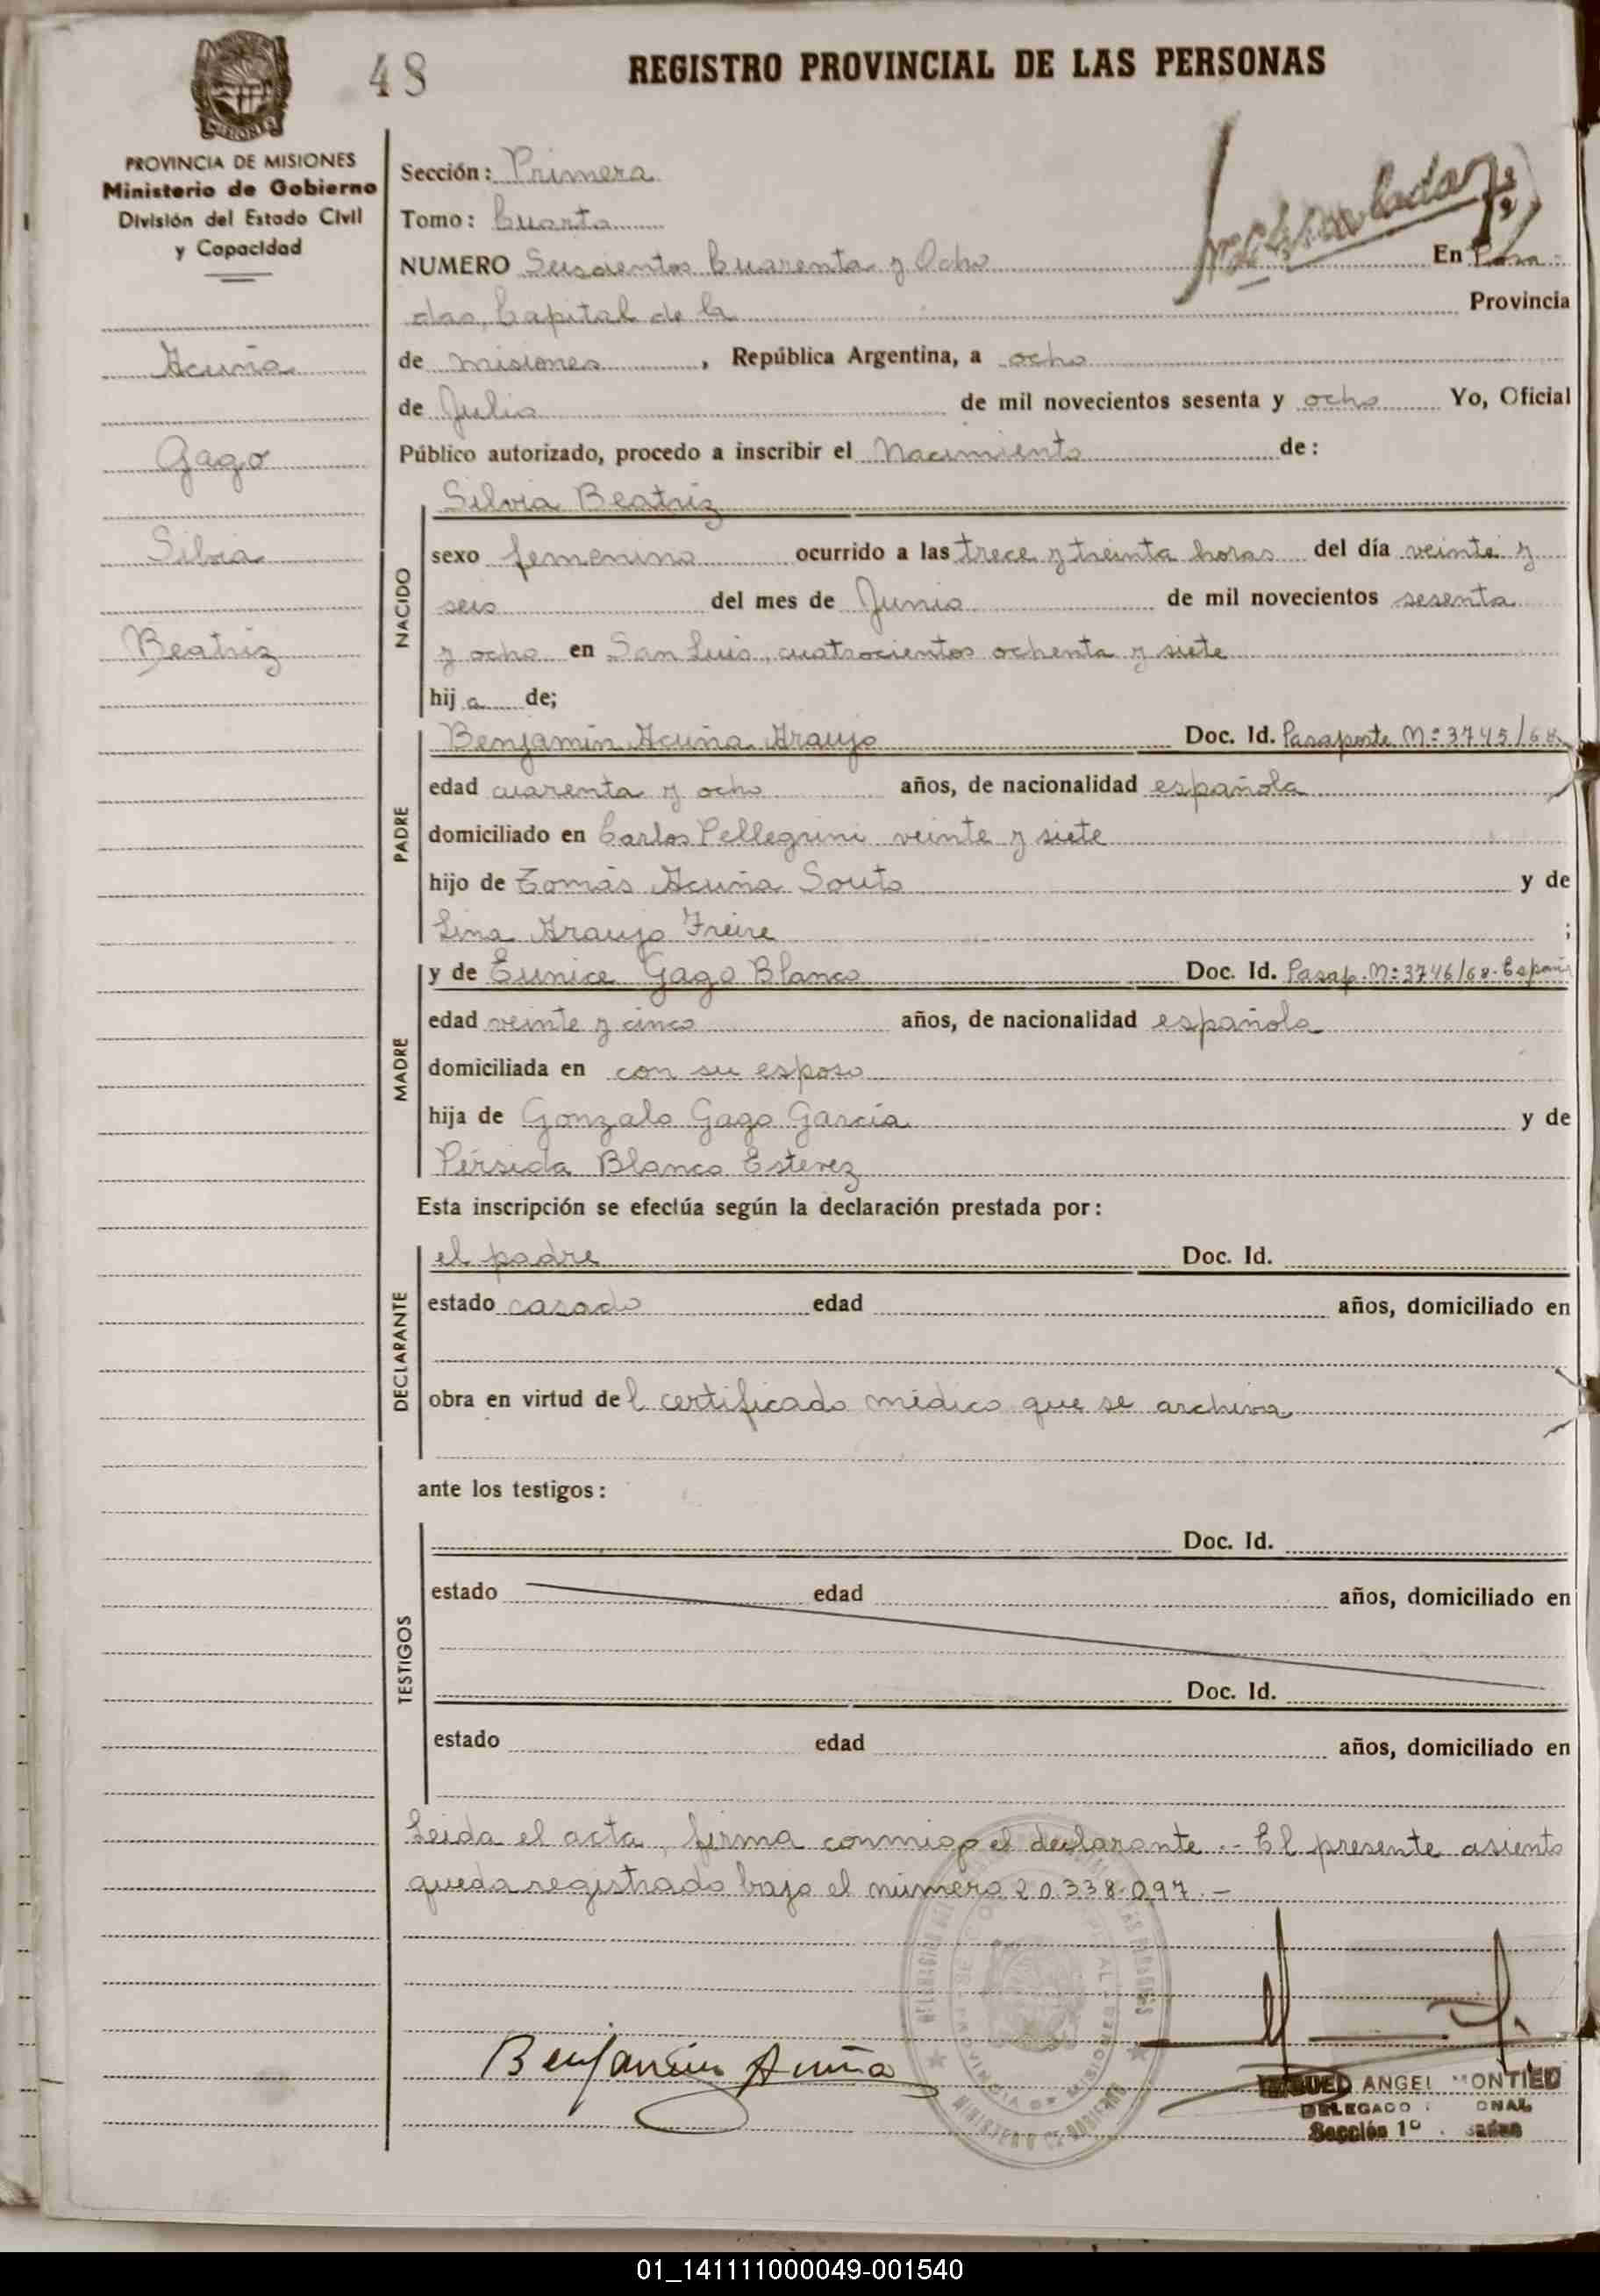 48
REGISTRO PROVINCIAL DE LAS PERSONAS
PROVINCIA DE MISIONES
Ministerio de Gobierno
División del Estado Civil
y Capacidad
Acuña
Gago
Silvia
Beatriz
Sección: Primera
Tomo: Cuarto
NUMERO Seiscientos Cuarenta y Ocho En Posa-
das, Capital de la Provincia
de Misiones, República Argentina, a ocho
de Julio de mil novecientos sesenta y ocho Yo, Oficial
Público autorizado, procedo a inscribir el Nacimiento de:
NACIDO
Silvia Beatriz
sexo femenino ocurrido a las trece y treinta horas del día veinte y
seis del mes de Junio de mil novecientos sesenta
y ocho en San Luis, cuatrocientos ochenta y siete
hij a de;
PADRE
Benjamín Acuña Araujo Doc. Id. Pasaporte Nº 3745/68
edad cuarenta y ocho años, de nacionalidad española
domiciliado en Carlos Pellegrini veinte y siete
hijo de Tomás Acuña Souto y de
Lina Araujo Freire ;
MADRE
y de Eunice Gago Blanco Doc. Id. Pasap. Nº 3746/68-España
edad veinte y cinco años, de nacionalidad española
domiciliada en con su esposo
hija de Gonzalo Gago García y de
Pérsida Blanco Estevez
Esta inscripción se efectúa según la declaración prestada por:
DECLARANTE
el padre Doc. Id.
estado casado edad años, domiciliado en
obra en virtud del certificado médico que se archiva
ante los testigos:
TESTIGOS
Doc. Id.
estado edad años, domiciliado en
Doc. Id.
estado edad años, domiciliado en
Leida el acta, firma conmigo el declarante.- El presente asiento
queda registrado bajo el número 20.338.097.-
Benjamín Acuña
ANGEL MONTIEL
DELEGADO
Sección 1º
01_141111000049-001540